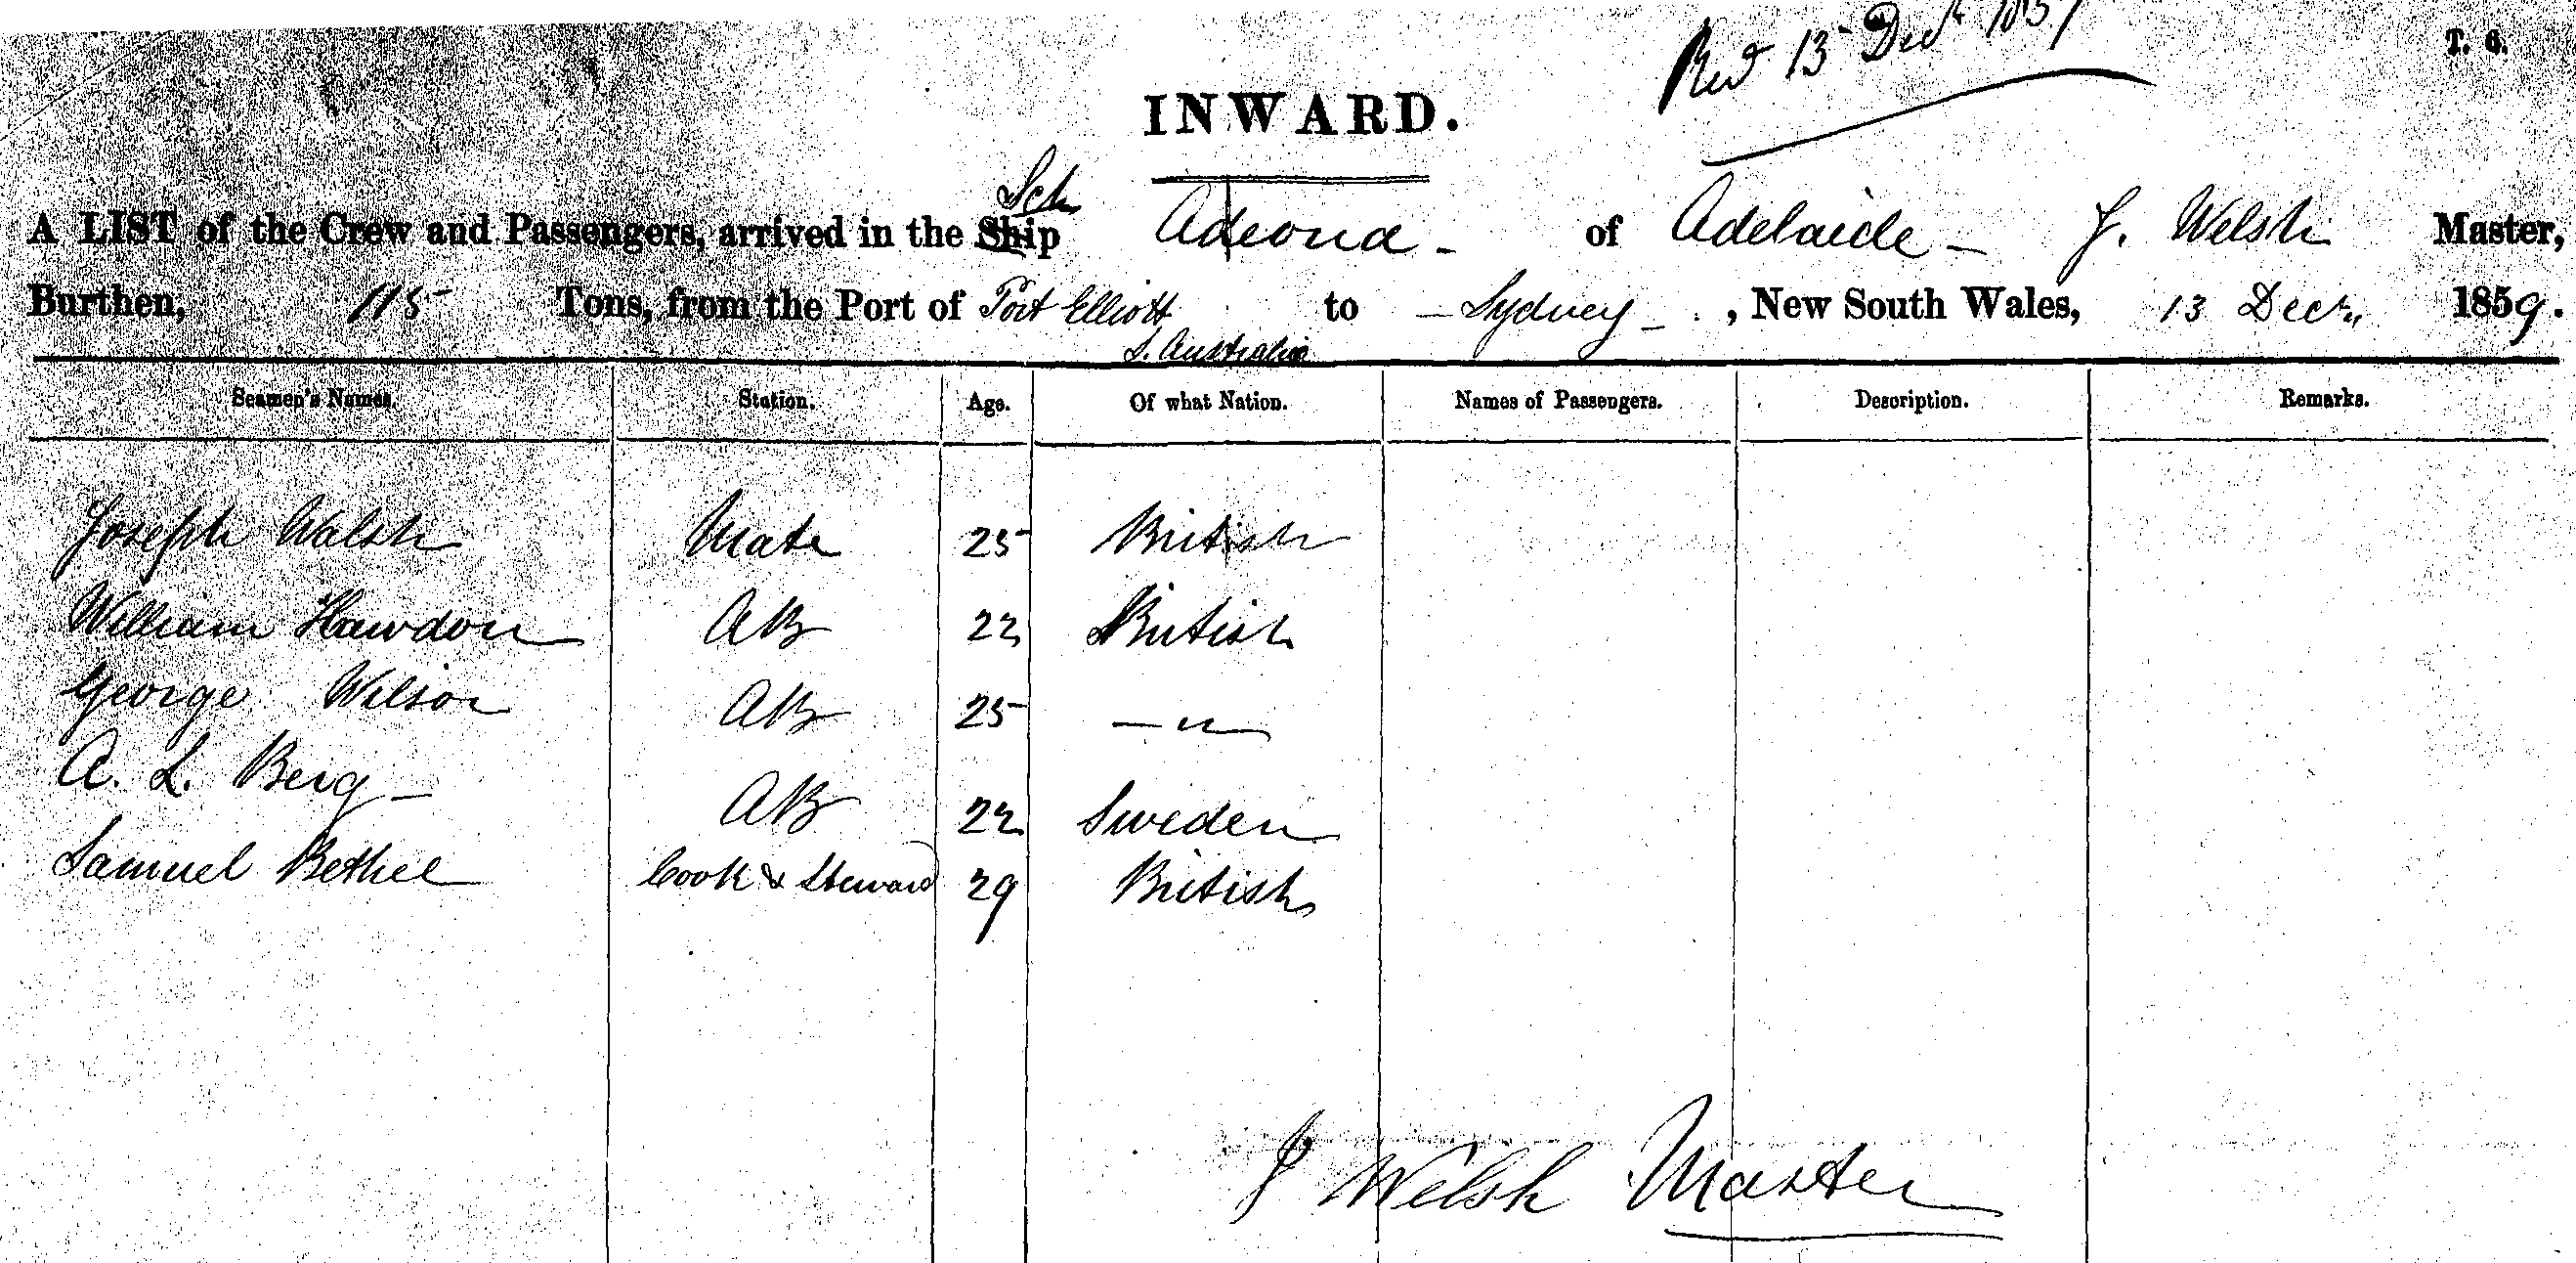 Recd 13 Decr 1859
T. 6.
INWARD.
Sch
A LIST of the Crew and Passengers, arrived in the Ship Adeona - of Adelaide - J. Welsh Master,
Burthen, 115 Tons, from the Port of Port Elliott to - Sydney - , New South Wales, 13 Decr, 1859.
S. Australia
Seamen's Names. Station. Age. Of what Nation. Names of Passengers. Description. Remarks.
Joseph Walsh Mate 25 British
William Hawdon AB 22 British
George Wilson AB 25 — " —
A. L. Berg - AB 22 Sweden
Samuel Bethel Cook & Steward 29 British
J Welsh Master